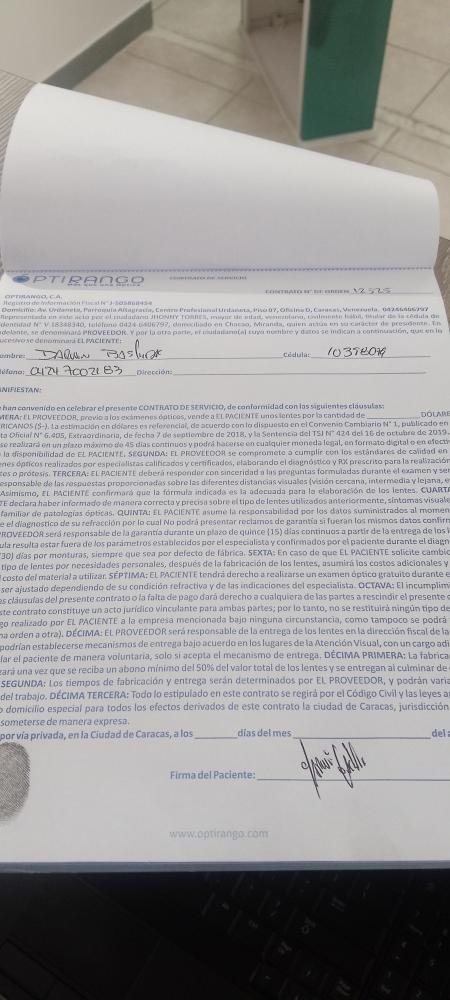 OPTIRANGO
CONTRATO DE SERVICIO
CONTRATO N° DE ORDEN 12525
OPTIRANGO, C.A.
Registro de Información Fiscal N° J-505868454
Domicilio: Av. Urdaneta, Parroquia Altagracia, Centro Profesional Urdaneta, Piso 07, Oficina D, Caracas, Venezuela. 04246406797
Representada en este acto por el ciudadano JHONNY TORRES, mayor de edad, venezolano, civilmente hábil, titular de la cédula de
identidad N° V-18348340, teléfono 0424-6406797, domiciliado en Chacao, Miranda, quien actúa en su carácter de presidente. En
adelante, se denominará PROVEEDOR. Y por la otra parte, el ciudadano(a) cuyo nombre y datos se indican a continuación, que en lo
sucesivo se denominará EL PACIENTE:
ombre: Cédula:
léfono: 04247002183 Dirección:
ANIFIESTAN:
e han convenido en celebrar el presente CONTRATO DE SERVICIO, de conformidad con las siguientes cláusulas:
MERA: EL PROVEEDOR, previo a los exámenes ópticos, vende a EL PACIENTE unos lentes por la cantidad de DÓLARE
RICANOS ($-). La estimación en dólares es referencial, de acuerdo con lo dispuesto en el Convenio Cambiario N° 1, publicado en
ta Oficial N° 6.405, Extraordinaria, de fecha 7 de septiembre de 2018, y la Sentencia del TSJ N° 424 del 16 de octubre de 2019.
se realizará en un plazo máximo de 45 días continuos y podrá hacerse en cualquier moneda legal, en formato digital o en efecti
la disponibilidad de EL PACIENTE. SEGUNDA: EL PROVEEDOR se compromete a cumplir con los estándares de calidad en
enes ópticos realizados por especialistas calificados y certificados, elaborando el diagnóstico y RX prescrito para la realización
tes o prótesis. TERCERA: EL PACIENTE deberá responder con sinceridad a las preguntas formuladas durante el examen y ser
responsable de las respuestas proporcionadas sobre las diferentes distancias visuales (visión cercana, intermedia y lejana, e
Asimismo, EL PACIENTE confirmará que la fórmula indicada es la adecuada para la elaboración de los lentes. CUART
TE declara haber informado de manera correcta y precisa sobre el tipo de lentes utilizados anteriormente, síntomas visuale
familiar de patologías ópticas. QUINTA: EL PACIENTE asume la responsabilidad por los datos suministrados al momen
e el diagnostico de su refracción por lo cual No podrá presentar reclamos de garantía si fueran los mismos datos confirm
PROVEEDOR será responsable de la garantía durante un plazo de quince (15) días continuos a partir de la entrega de los l
ula resulta estar fuera de los parámetros establecidos por el especialista y confirmados por el paciente durante el diagn
(30) días por monturas, siempre que sea por defecto de fábrica. SEXTA: En caso de que EL PACIENTE solicite cambio
tipo de lentes por necesidades personales, después de la fabricación de los lentes, asumirá los costos adicionales y
costo del material a utilizar. SÉPTIMA: EL PACIENTE tendrá derecho a realizarse un examen óptico gratuito durante e
ser ajustado dependiendo de su condición refractiva y de las indicaciones del especialista. OCTAVA: El incumplimi
as cláusulas del presente contrato o la falta de pago dará derecho a cualquiera de las partes a rescindir el presente c
ste contrato constituye un acto jurídico vinculante para ambas partes; por lo tanto, no se restituirá ningún tipo de
go realizado por EL PACIENTE a la empresa mencionada bajo ninguna circunstancia, como tampoco se podrá
na orden a otra). DÉCIMA: EL PROVEEDOR será responsable de la entrega de los lentes en la dirección fiscal de la
podrían establecerse mecanismos de entrega bajo acuerdo en los lugares de la Atención Visual, con un cargo adi
lar el paciente de manera voluntaria, solo si acepta el mecanismo de entrega. DÉCIMA PRIMERA: La fabrica
zará una vez que se reciba un abono mínimo del 50% del valor total de los lentes y se entregan al culminar de
SEGUNDA: Los tiempos de fabricación y entrega serán determinados por EL PROVEEDOR, y podrán varia
del trabajo. DÉCIMA TERCERA: Todo lo estipulado en este contrato se regirá por el Código Civil y las leyes ap
o domicilio especial para todos los efectos derivados de este contrato la ciudad de Caracas, jurisdicción
someterse de manera expresa.
por vía privada, en la Ciudad de Caracas, a los días del mes del a
Firma del Paciente:
www.optirango.com